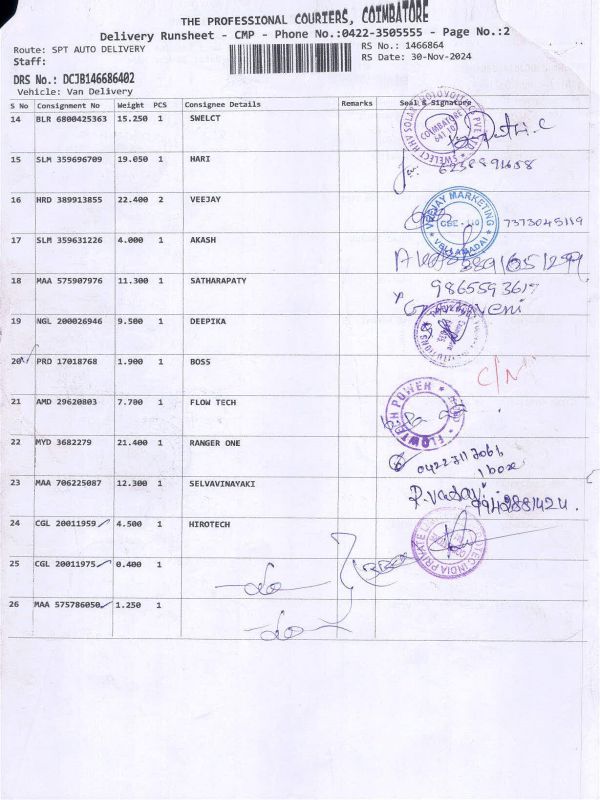 THE PROFESSIONAL COURIERS, COIMBATORE
Delivery Runsheet - CMP - Phone No.:0422-3505555 - Page No.:2
Route: SPT AUTO DELIVERY
RS No.: 1466864
Staff:
RS Date: 30-Nov-2024
DRS No.: DCJB146686402
Vehicle: Van Delivery
S No Consignment No Weight PCS Consignee Details Remarks Seal & Signature
14 BLR 6800425363 15.250 1 SWELCT
15 SLM 359696709 19.050 1 HARI
16 HRD 389913855 22.400 2 VEEJAY VEEJAY MARKETING CBE - 110 VELLAMADAI 7373045119
17 SLM 359631226 4.000 1 AKASH
18 MAA 575907976 11.300 1 SATHARAPATY 9865593617
19 NGL 200026946 9.500 1 DEEPIKA
20 PRD 17018768 1.900 1 BOSS C/N
21 AMD 29620803 7.700 1 FLOW TECH FLOWTECH POWER
22 MYD 3682279 21.400 1 RANGER ONE
1 box
23 MAA 706225087 12.300 1 SELVAVINAYAKI
24 CGL 20011959 4.500 1 HIROTECH
25 CGL 20011975 0.400 1 -do-
26 MAA 575786050 1.250 1 -do-